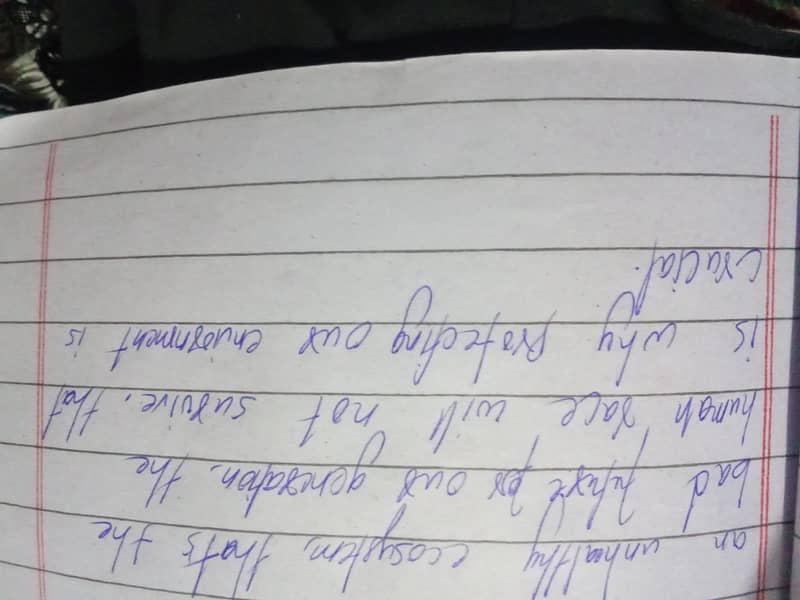 an unhealthy ecosystem, that's the
bad future for our generation. the
human race will not survive. that
is why protecting our enviornment is
crucial.